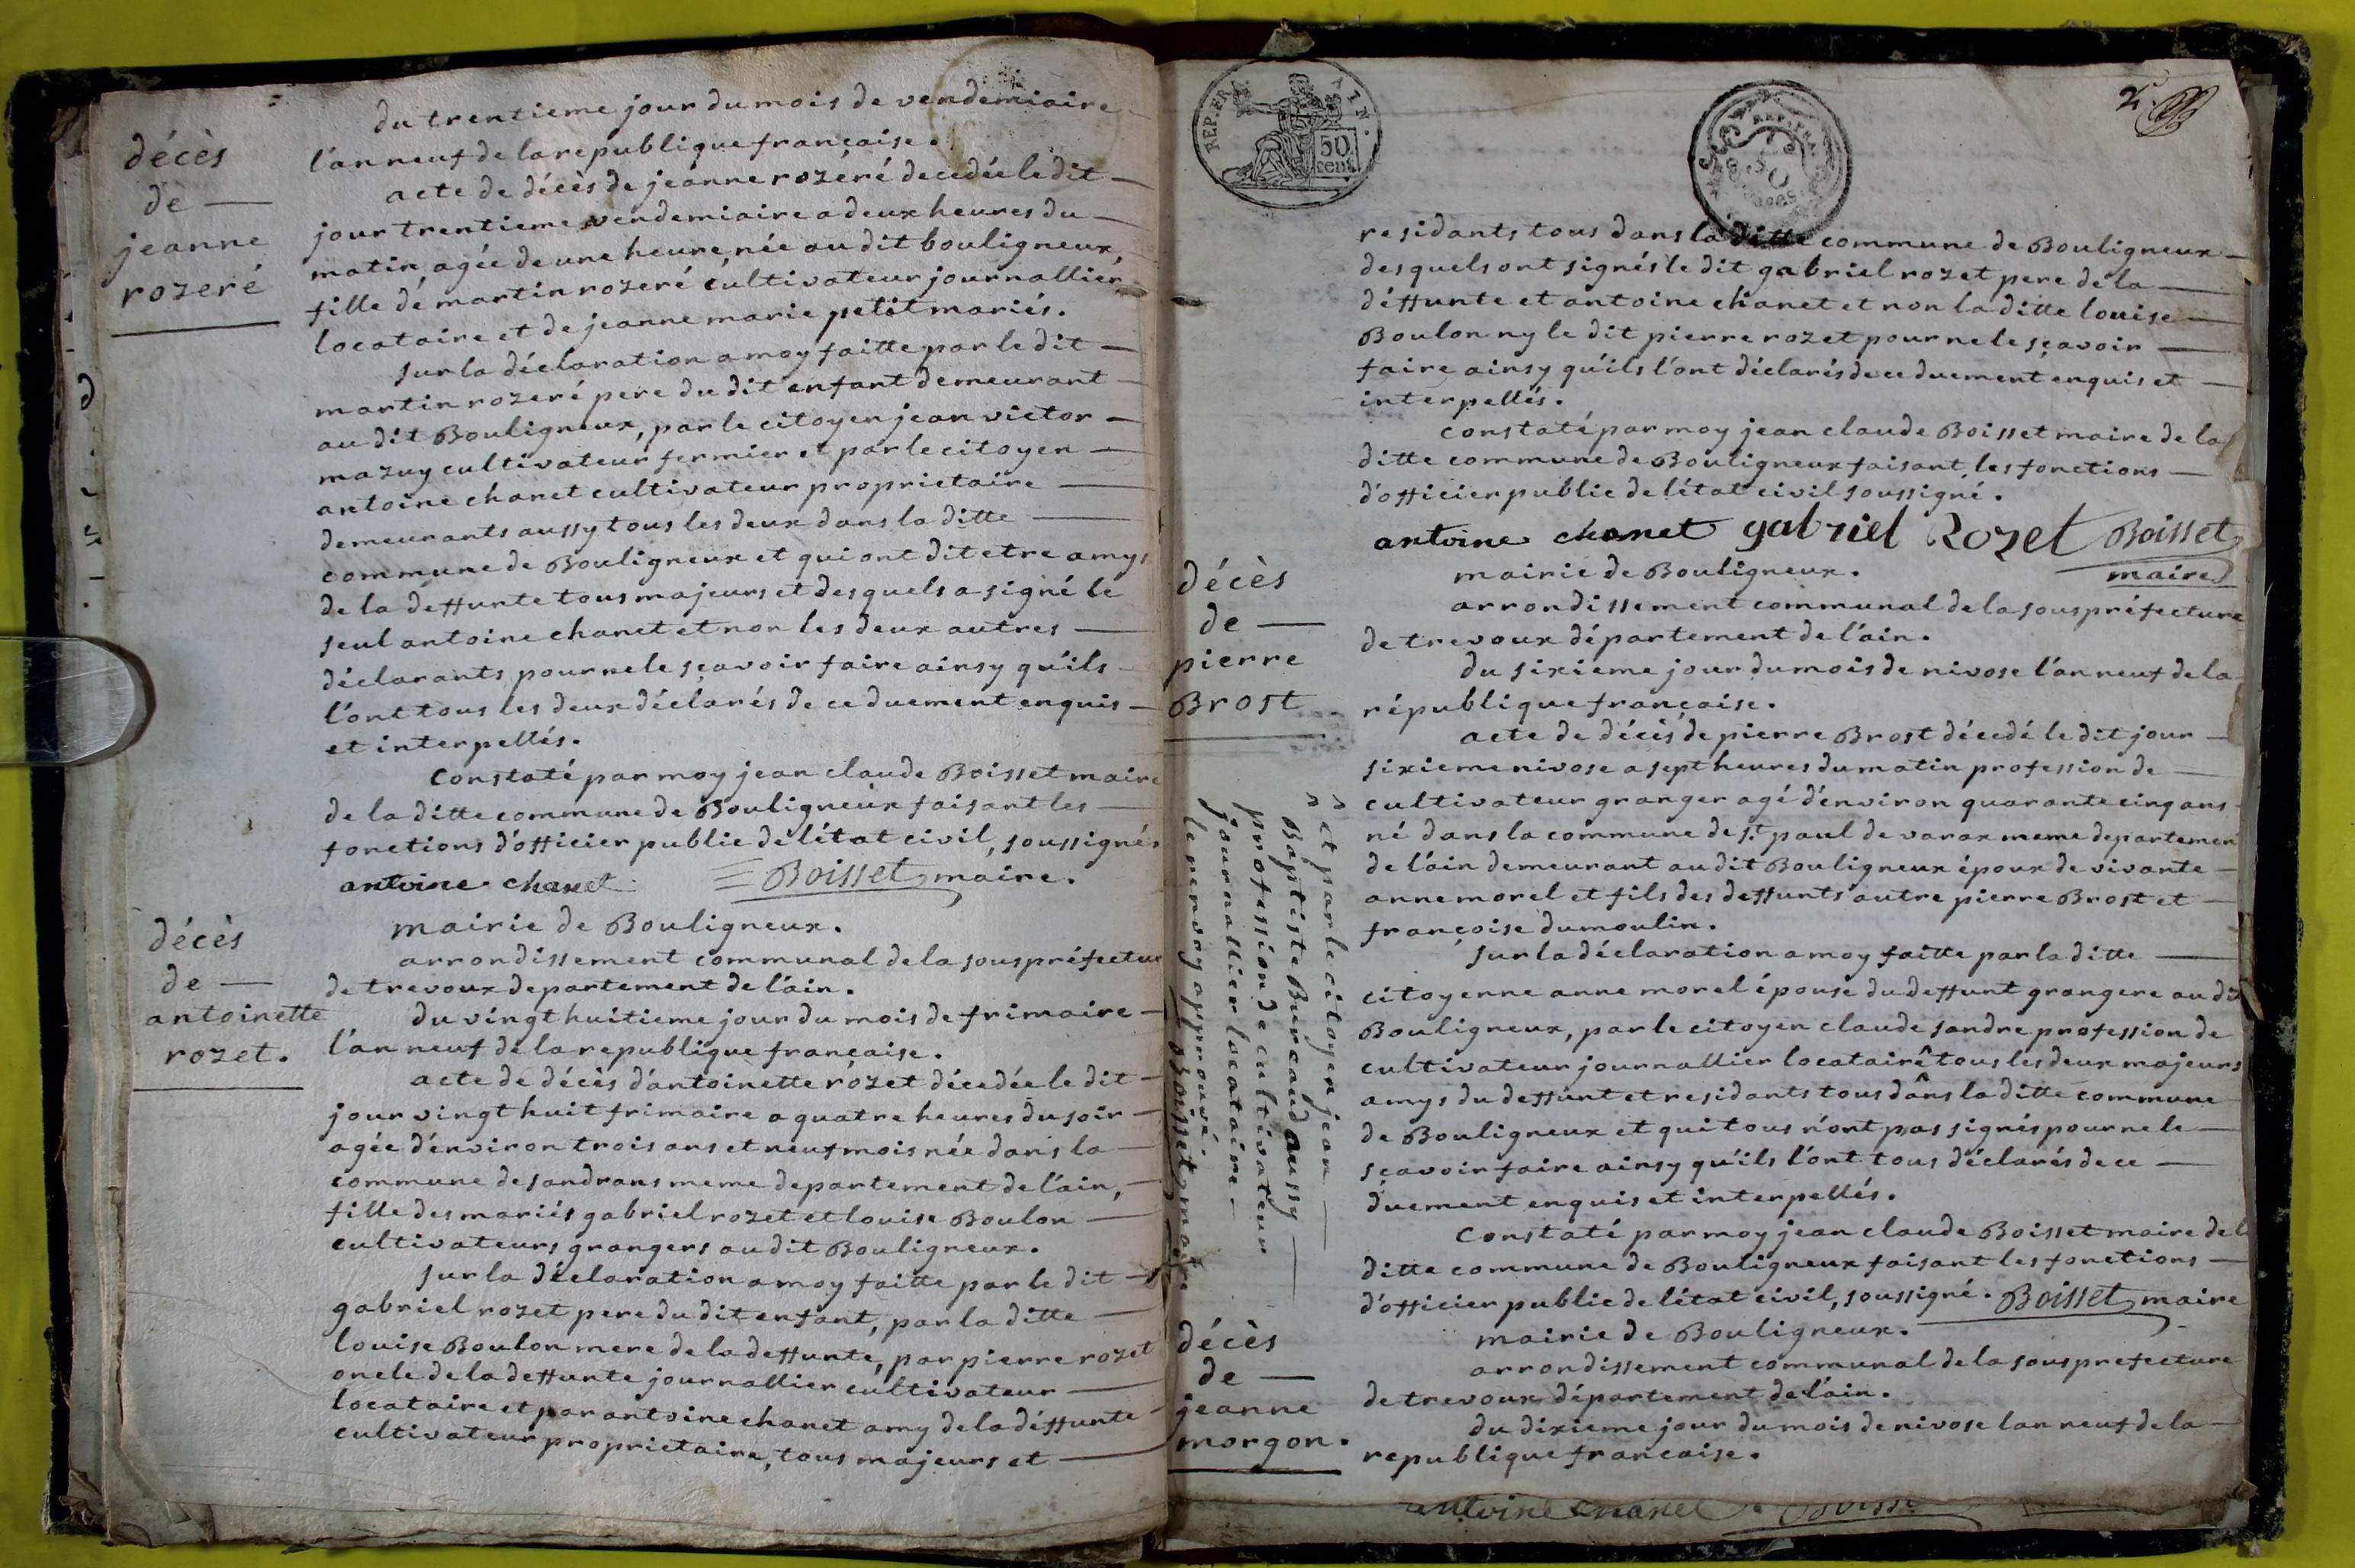 décès
de —
jeanne
rozeré
du trentieme jour du mois de vendemiaire
l'an neuf de la republique française.
acte de décès de jeanne rozeré decedée le dit —
jour trentieme vendemiaire a deux heures du —
matin, agée de une heure, née au dit bouligneux,
fille de martin rozeré cultivateur journallier
locataire et de jeanne marie petit mariés.
sur la déclaration a moy faitte par le dit —
martin rozeré pere du dit enfant demeurant —
au dit Bouligneux, par le citoyen jean victor —
mazuy cultivateur fermier et par le citoyen —
antoine chanet cultivateur proprietaire —
demeurants aussy tous les deux dans la ditte —
commune de Bouligneux et qui ont dit etre amys
de la deffunte tous majeurs et desquels a signé le
seul antoine chanet et non les deux autres —
déclarants pour ne le sçavoir faire ainsy qu'ils —
l'ont tous les deux déclarés de ce duement enquis —
et interpellés.
Constaté par moy jean claude Boisset maire
de la ditte commune de Bouligneux faisant les —
fonctions d'officier public de l'état civil, soussignés
antoine chanet Boisset maire.
décès
de —
antoinette
rozet.
mairie de Bouligneux.
arrondissement communal de la souspréfectur
de trevoux departement de l'ain.
du vingt huitieme jour du mois de frimaire —
l'an neuf de la republique française.
acte de décès d'antoinette rozet décedée le dit —
jour vingt huit frimaire a quatre heures du soir —
agée d'environ trois ans et neuf mois née dans la —
commune de sandrans meme departement de l'ain, —
fille des mariés gabriel rozet et louise Boulon —
cultivateurs grangers au dit Bouligneux.
sur la déclaration a moy faitte par le dit —
gabriel rozet pere du dit enfant, par la ditte —
louise Boulon mere de la deffunte, par pierre rozet
oncle de la deffunte journallier cultivateur —
locataire et par antoine chanet amy de la déffunte —
cultivateur proprietaire, tous majeurs et —
REP. FRA AIN.
50
cent
REP. FRA.
50
2.
residants tous dans la ditte commune de Bouligneux —
desquels ont signés le dit gabriel rozet pere de la —
déffunte et antoine chanet et non la ditte louise —
Boulon ny le dit pierre rozet pour ne le sçavoir —
faire ainsy qu'ils l'ont déclarés de ce duement enquis et —
interpellés.
Constaté par moy jean claude Boisset maire de la
ditte commune de Bouligneux faisant les fonctions —
d'officier public de l'état civil soussigné.
antoine chanet gabriel Rozet Boisset
maire
décès
de —
pierre
Brost
mairie de Bouligneux.
arrondissement communal de la souspréfecture
de trevoux département de l'ain.
du sixieme jour du mois de nivose l'an neuf de la
république française.
acte de décès de pierre Brost décedé le dit jour —
sixieme nivose a sept heures du matin profession de —
cultivateur granger agé d'environ quarante cinq ans —
né dans la commune de st. paul de varax meme departemen
de l'ain demeurant au dit Bouligneux époux de vivante —
anne morel et fils des deffunts autre pierre Brost et —
françoise dumoulin.
sur la déclaration a moy faitte par la ditte —
citoyenne anne morel épouse du deffunt grangere au dit
Bouligneux, par le citoyen claude sandre profession de
cultivateur journallier locataire ^ tous les deux majeurs
amys du deffunt et residants tous dans la ditte commune
de Bouligneux et qui tous n'ont pas signés pour ne le —
sçavoir faire ainsy qu'ils l'ont tous déclarés de ce —
duement enquis et interpellés.
Constaté par moy jean claude Boisset maire de l
ditte commune de Bouligneux faisant les fonctions —
d'officier public de l'état civil, soussigné. Boisset maire
et par le citoyen jean —
Baptiste Bureaud aussy —
profession de cultivateur
journallier locataire. —
le renvoy approuvé.
Boisset maire
décès
de —
jeanne
morgon.
mairie de Bouligneux.
arrondissement communal de la sousprefecture
de trevoux département de l'ain.
du dixieme jour du mois de nivose lan neuf de la —
republique francaise.
antoine chanet Boisse